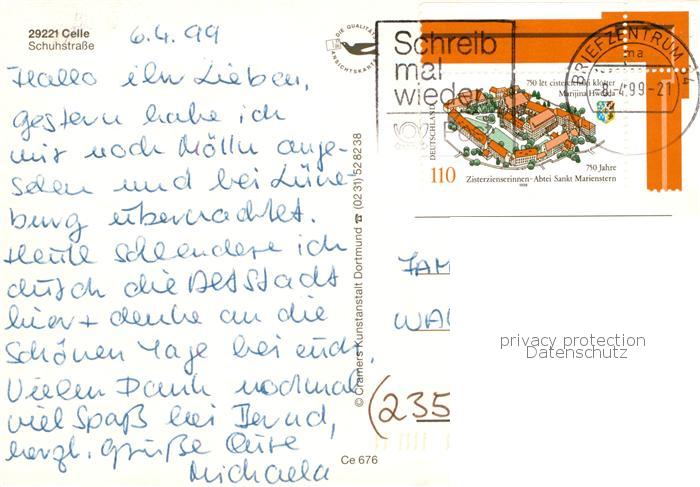 29221 Celle
Schuhstraße
6.4.99
Hallo ihr Lieben,
gestern habe ich
mir noch Mölln ange-
sehen und bei Lüne-
burg übernachtet.
Heute schlendere ich
durch die Altstadt
hier + denke an die
schönen Tage bei euch.
Vielen Dank nochmal,
viel Spaß bei Bernd,
herzl. Grüße Eure
Michaela
DIE QUALITÄTS
ANSICHTSKARTE
© Cramers Kunstanstalt Dortmund ☎ (0231) 528238
Ce 676
Schreib
mal
wieder
BRIEFZENTRUM
ma
-8.-4.99-21
750 lět cistercienski klóšter
Marijina Hwězda
DEUTSCHLAND
110
750 Jahre
Zisterzienserinnen-Abtei Sankt Marienstern
1998
FAM
WA
(235
privacy protection
Datenschutz